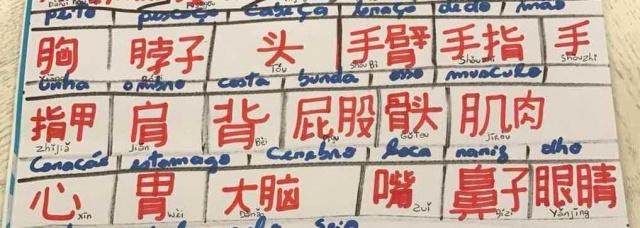 peito pescoço cabeça braço dedo mão
胸 脖子 头 手臂 手指 手
Tóu ShǒuBì Shǒuzhǐ Shǒuzhǐ
unha ombro costa bunda osso musculo
指甲 肩 背 屁股 骨头 肌肉
Zhǐjiǎ Jiān Bèi Gǔtou Jīròu
Coração estomago Cerebro boca nariz olho
心 胃 大脑 嘴 鼻子 眼睛
Xīn Wèi Dànǎo Zuǐ Bízi Yǎnjīng
seio